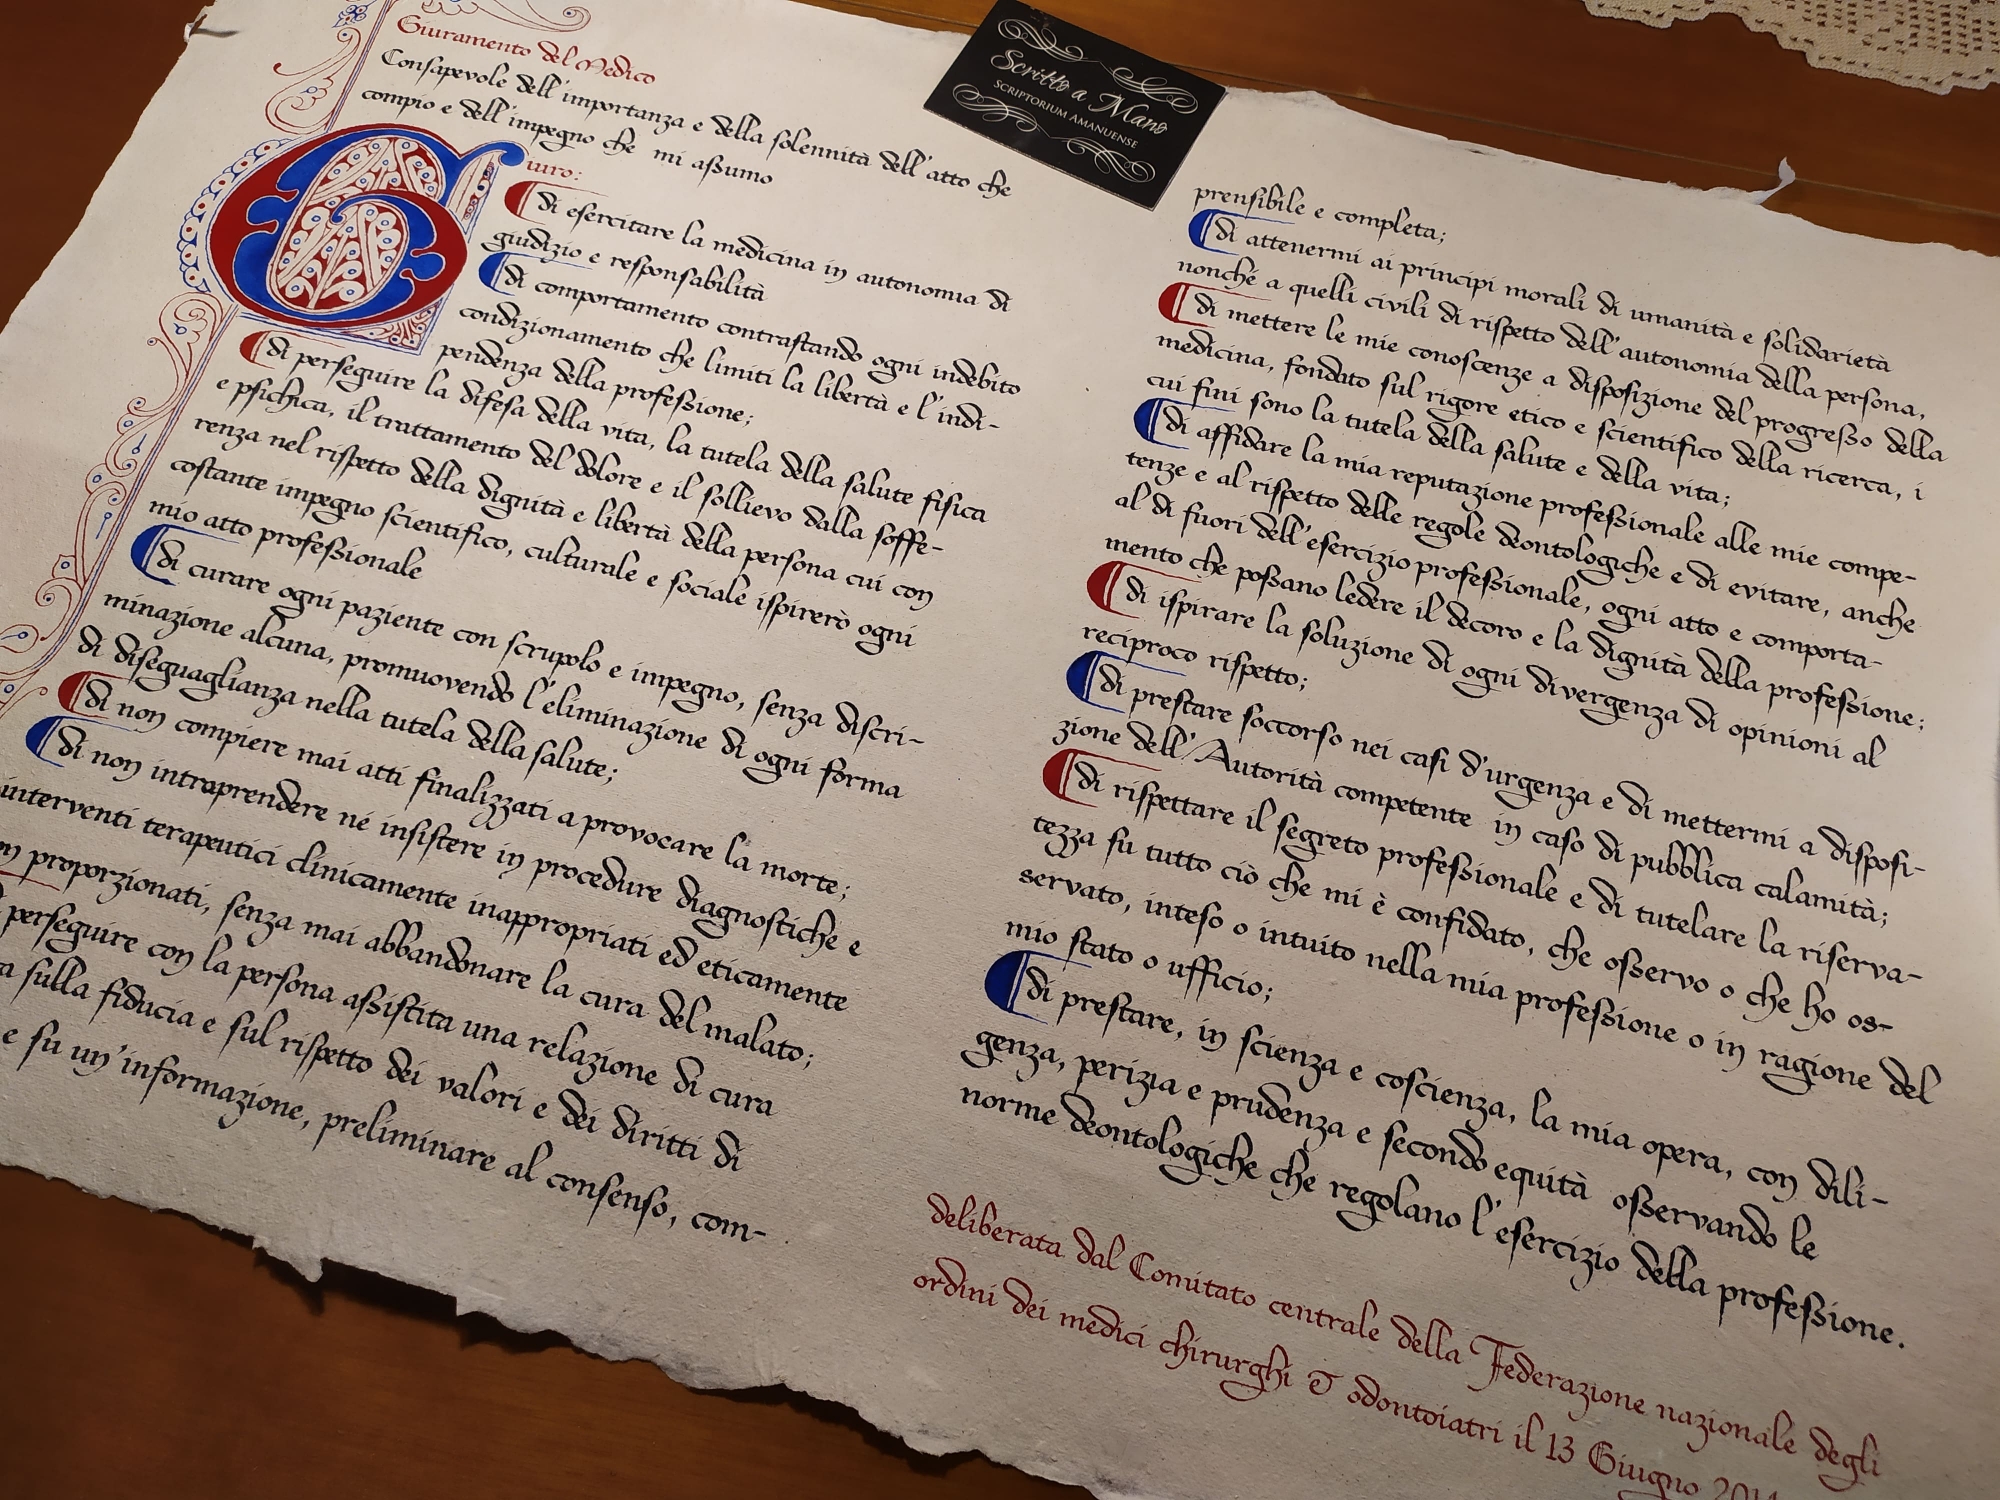 Giuramento del Medico
Consapevole dell'importanza e della solennità dell'atto che
compio e dell'impegno che mi assumo
Giuro:
di esercitare la medicina in autonomia di
giudizio e responsabilità
di comportamento contrastando ogni indebito
condizionamento che limiti la libertà e l'indi-
pendenza della professione;
di perseguire la difesa della vita, la tutela della salute fisica
e psichica, il trattamento del dolore e il sollievo dalla soffe-
renza nel rispetto della dignità e libertà della persona cui con
costante impegno scientifico, culturale e sociale ispirerò ogni
mio atto professionale
di curare ogni paziente con scrupolo e impegno, senza discri-
minazione alcuna, promuovendo l'eliminazione di ogni forma
di diseguaglianza nella tutela della salute;
di non compiere mai atti finalizzati a provocare la morte;
di non intraprendere né insistere in procedure diagnostiche e
interventi terapeutici clinicamente inappropriati ed eticamente
proporzionati, senza mai abbandonare la cura del malato;
perseguire con la persona assistita una relazione di cura
sulla fiducia e sul rispetto dei valori e dei diritti di
e su un'informazione, preliminare al consenso, com-
Scritto a Mano
SCRIPTORIUM AMANUENSE
prensibile e completa;
di attenermi ai principi morali di umanità e solidarietà
nonché a quelli civili di rispetto dell'autonomia della persona,
di mettere le mie conoscenze a disposizione del progresso della
medicina, fondato sul rigore etico e scientifico della ricerca, i
cui fini sono la tutela della salute e della vita;
di affidare la mia reputazione professionale alle mie compe-
tenze e al rispetto delle regole deontologiche e di evitare, anche
al di fuori dell'esercizio professionale, ogni atto e comporta-
mento che possano ledere il decoro e la dignità della professione;
di ispirare la soluzione di ogni divergenza di opinioni al
reciproco rispetto;
di prestare soccorso nei casi d'urgenza e di mettermi a disposi-
zione dell'Autorità competente in caso di pubblica calamità;
di rispettare il segreto professionale e di tutelare la riserva-
tezza su tutto ciò che mi è confidato, che osservo o che ho os-
servato, inteso o intuito nella mia professione o in ragione del
mio stato o ufficio;
di prestare, in scienza e coscienza, la mia opera, con dili-
genza, perizia e prudenza e secondo equità osservando le
norme deontologiche che regolano l'esercizio della professione.
deliberata dal Comitato centrale della Federazione nazionale degli
ordini dei medici chirurghi & odontoiatri il 13 Giugno 2014